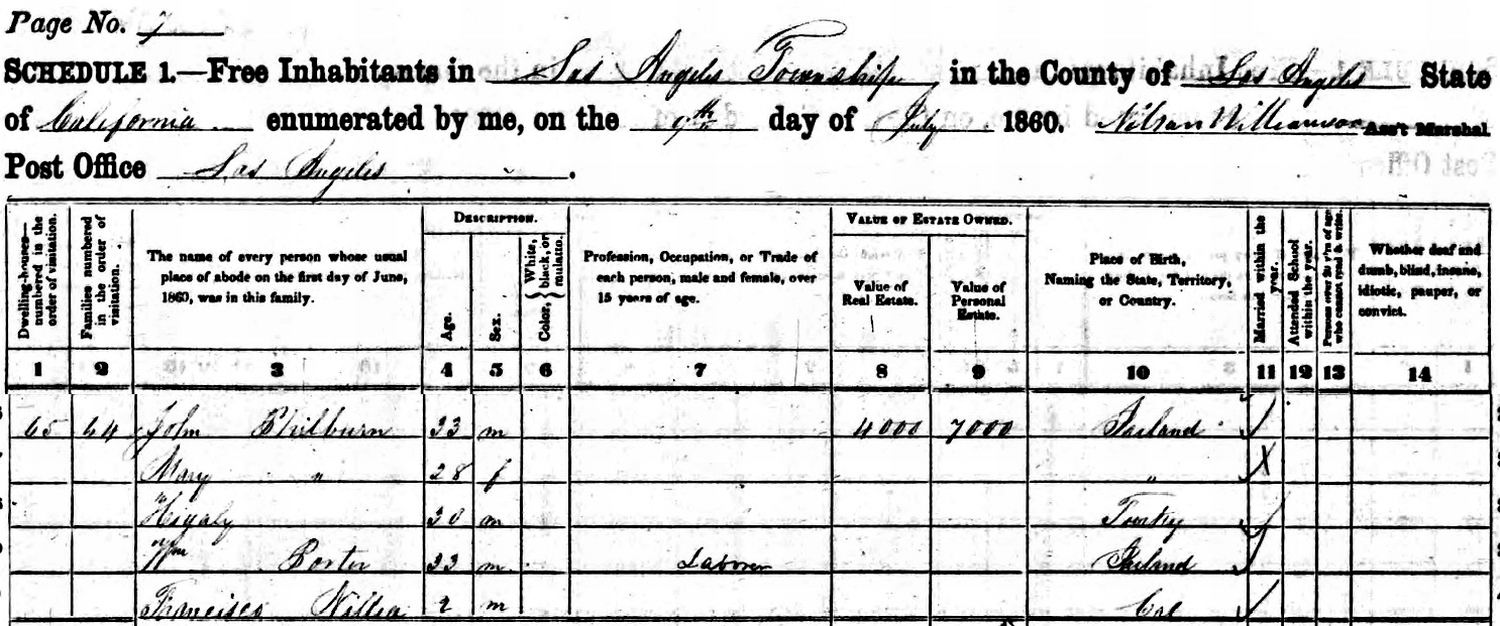 Page No. 7
SCHEDULE 1.—Free Inhabitants in Los Angeles Township in the County of Los Angeles State
of California enumerated by me, on the 9th day of July 1860. Nelson Williamson Ass't Marshal.
Post Office Los Angeles.
Dwelling-houses—numbered in the order of visitation.
Families numbered in the order of visitation.
The name of every person whose usual place of abode on the first day of June, 1860, was in this family.
DESCRIPTION.
Age.
Sex.
Color, { White, black, or mulatto.
Profession, Occupation, or Trade of each person, male and female, over 15 years of age.
VALUE OF ESTATE OWNED.
Value of Real Estate.
Value of Personal Estate.
Place of Birth, Naming the State, Territory, or Country.
Married within the year.
Attended School within the year.
Persons over 20 y'rs of age who cannot read & write.
Whether deaf and dumb, blind, insane, idiotic, pauper, or convict.
1 2 3 4 5 6 7 8 9 10 11 12 13 14
65 64 John 33 m 4000 7000 Ireland /
Mary " 28 f " X
30 m Turky /
Wm Porter 33 m Laborer Ireland /
Francisco 2 m Cal /